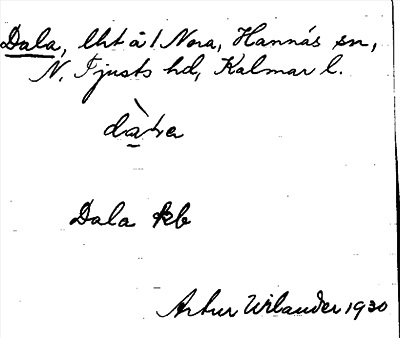 Dala, lht å 1 Nora, Hannäs sn,
N. Tjusts hd, Kalmar l.
Dala kb
Artur Wilander 1930